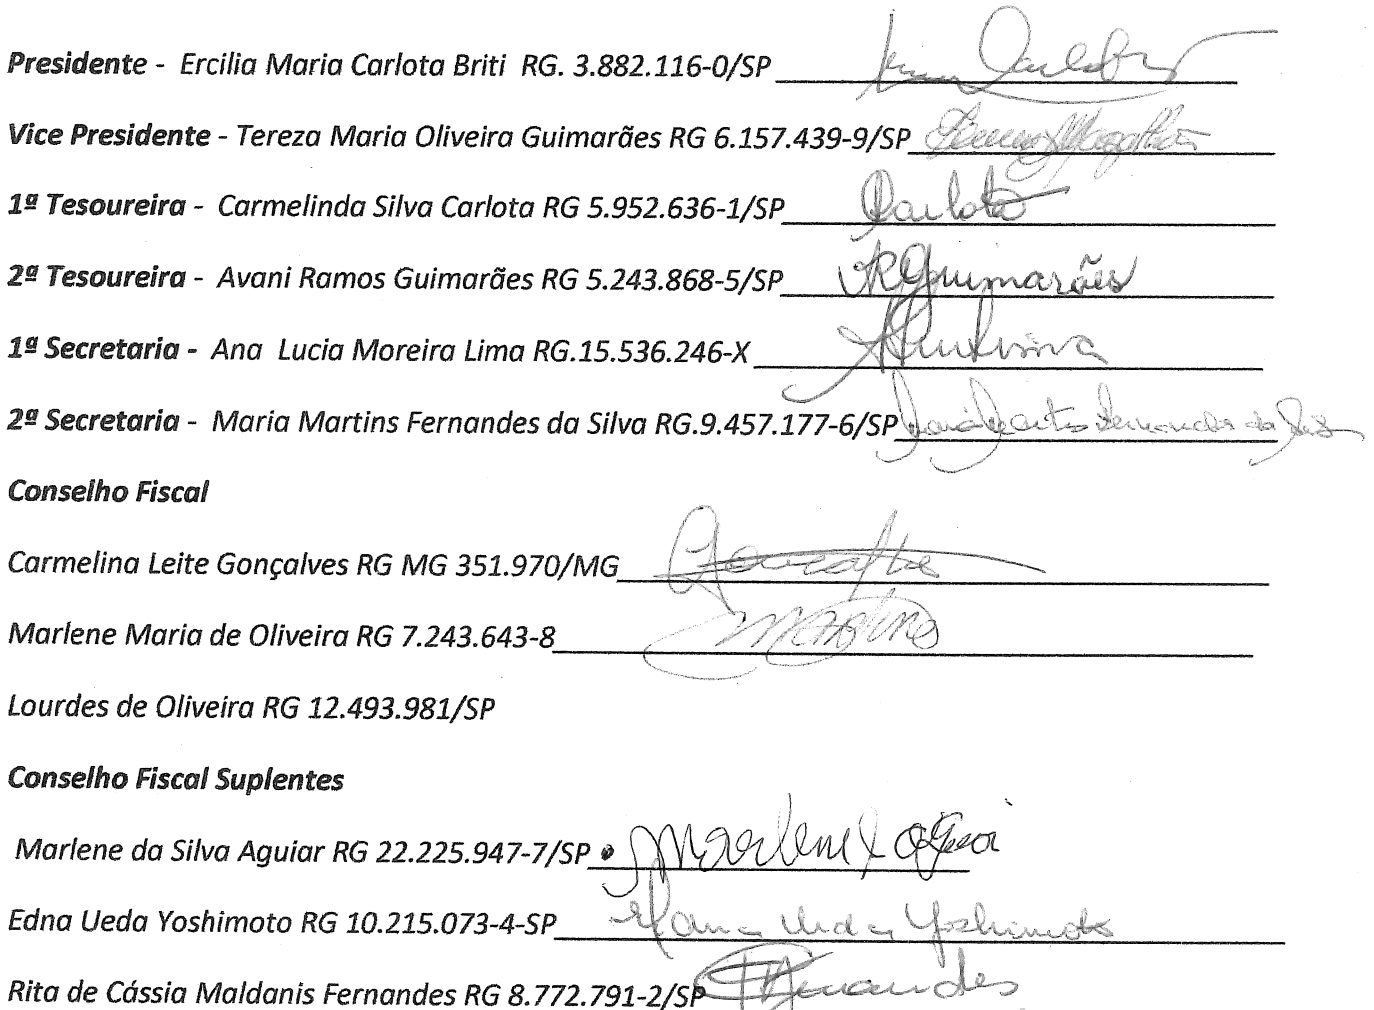 Presidente - Ercilia Maria Carlota Briti RG. 3.882.116-0/SP
Vice Presidente - Tereza Maria Oliveira Guimarães RG 6.157.439-9/SP
1ª Tesoureira - Carmelinda Silva Carlota RG 5.952.636-1/SP Carlota
2ª Tesoureira - Avani Ramos Guimarães RG 5.243.868-5/SP ARGuimarães
1ª Secretaria - Ana Lucia Moreira Lima RG.15.536.246-X
2ª Secretaria - Maria Martins Fernandes da Silva RG.9.457.177-6/SP Maria Martins Fernandes da Silva
Conselho Fiscal
Carmelina Leite Gonçalves RG MG 351.970/MG
Marlene Maria de Oliveira RG 7.243.643-8
Lourdes de Oliveira RG 12.493.981/SP
Conselho Fiscal Suplentes
Marlene da Silva Aguiar RG 22.225.947-7/SP Marlene
Edna Ueda Yoshimoto RG 10.215.073-4-SP Ueda Yoshimoto
Rita de Cássia Maldanis Fernandes RG 8.772.791-2/SP Fernandes